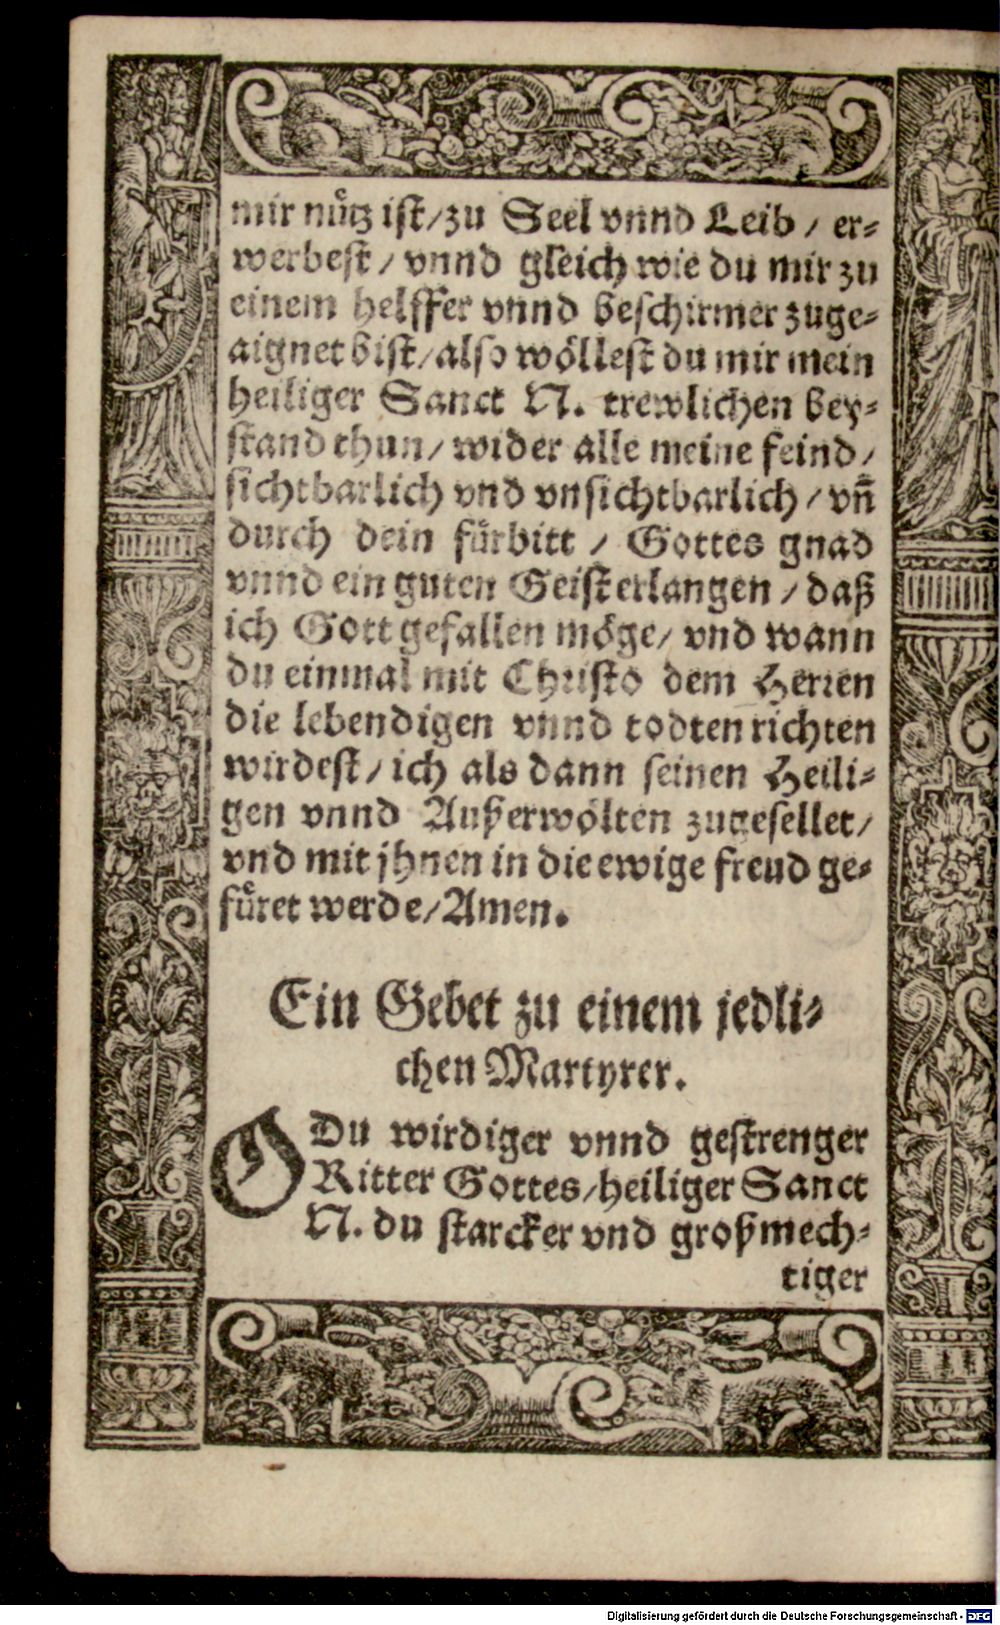 mir nütz ist/zu Seel vnnd Leib/ er-
werbest/ vnnd gleich wie du mir zu
einem helffer vnnd beschirmer zuge-
aignet bist/also wöllest du mir mein
heiliger Sanct N. trewlichen bey-
stand thun/ wider alle meine feind/
sichtbarlich vnd vnsichtbarlich/ vñ
durch dein fürbitt/ Gottes gnad
vnnd ein guten Geist erlangen/ daß
ich Gott gefallen möge/ vnd wann
du einmal mit Christo dem Herren
die lebendigen vnnd todten richten
wirdest/ ich als dann seinen Heili-
gen vnnd Außerwölten zugesellet/
vnd mit jhnen in die ewige freud ge-
füret werde/Amen.
Ein Gebet zu einem jedli-
chen Martyrer.
O Du wirdiger vnnd gestrenger
Ritter Gottes/heiliger Sanct
N. du starcker vnd großmech-
tiger
Digitalisierung gefördert durch die Deutsche Forschungsgemeinschaft - DFG